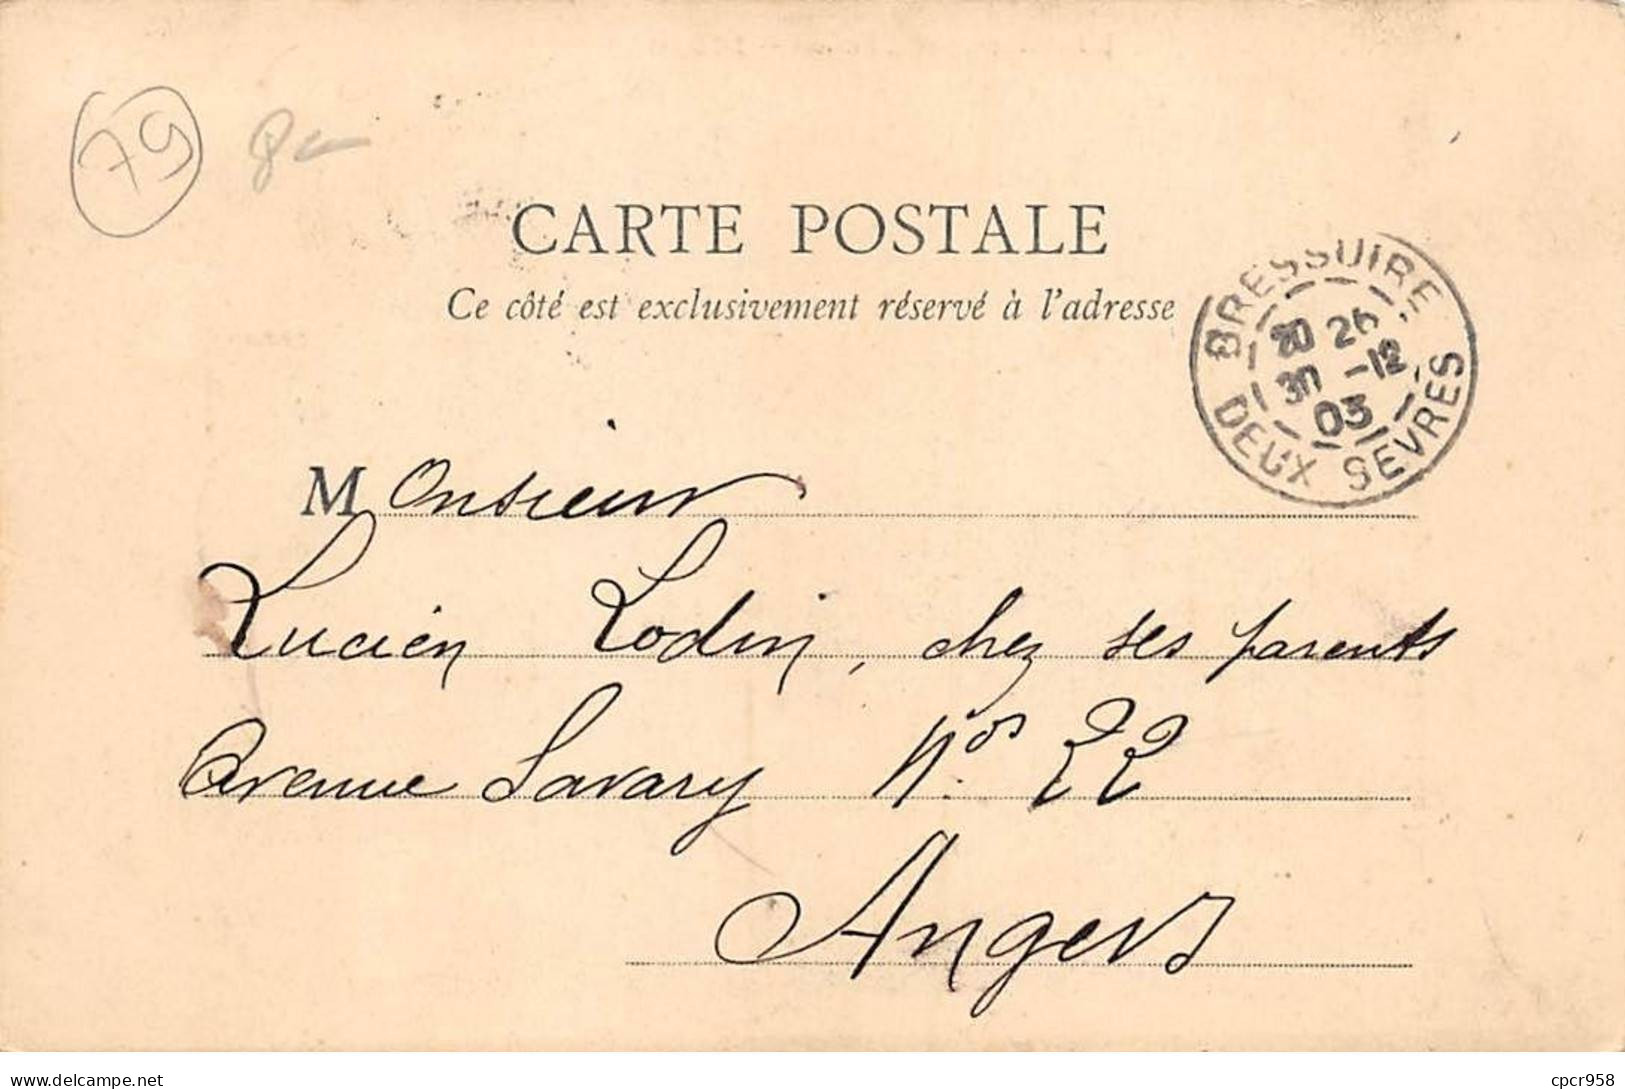 79
CARTE POSTALE
Ce côté est exclusivement réservé à l'adresse
BRESSUIRE
20 26
30 -12
03
DEUX SEVRES
Monsieur
Lucien Lodin, chez ses parents
Avenue Savary Nos 22
Angers
delcampe.net
cpcr958